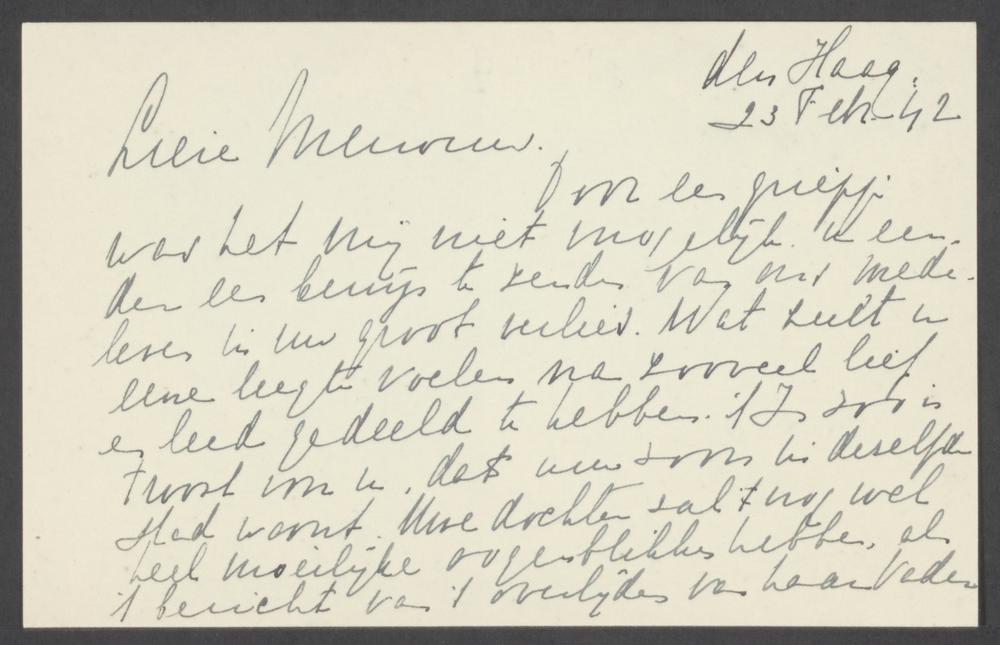 den Haag.
23 Feb. 42
Lieve Mevrouw.
Door een griepje
was het mij niet mogelijk u eer-
der een bewijs te zenden van ons mede-
leven in uw groot verlies. Wat zult u
eene leegte voelen na zooveel lief
en leed gedeeld te hebben. 't Is zoo'n
troost voor u, dat uw zoon in dezelfde
stad woont. Uwe dochter zal 't nog wel
heel moeilijke oogenblikken hebben, als
't bericht van 't overlijden van haar Vader